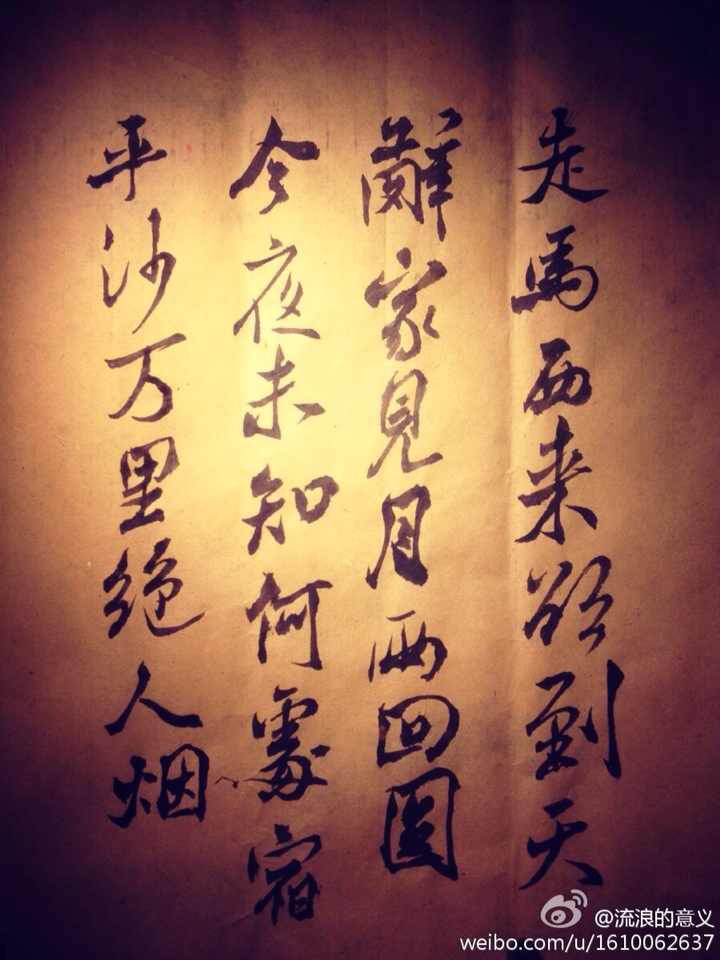 走馬西来欲到天
辭家見月两回圓
今夜未知何處宿
平沙万里绝人烟
@流浪的意义
weibo.com/u/1610062637